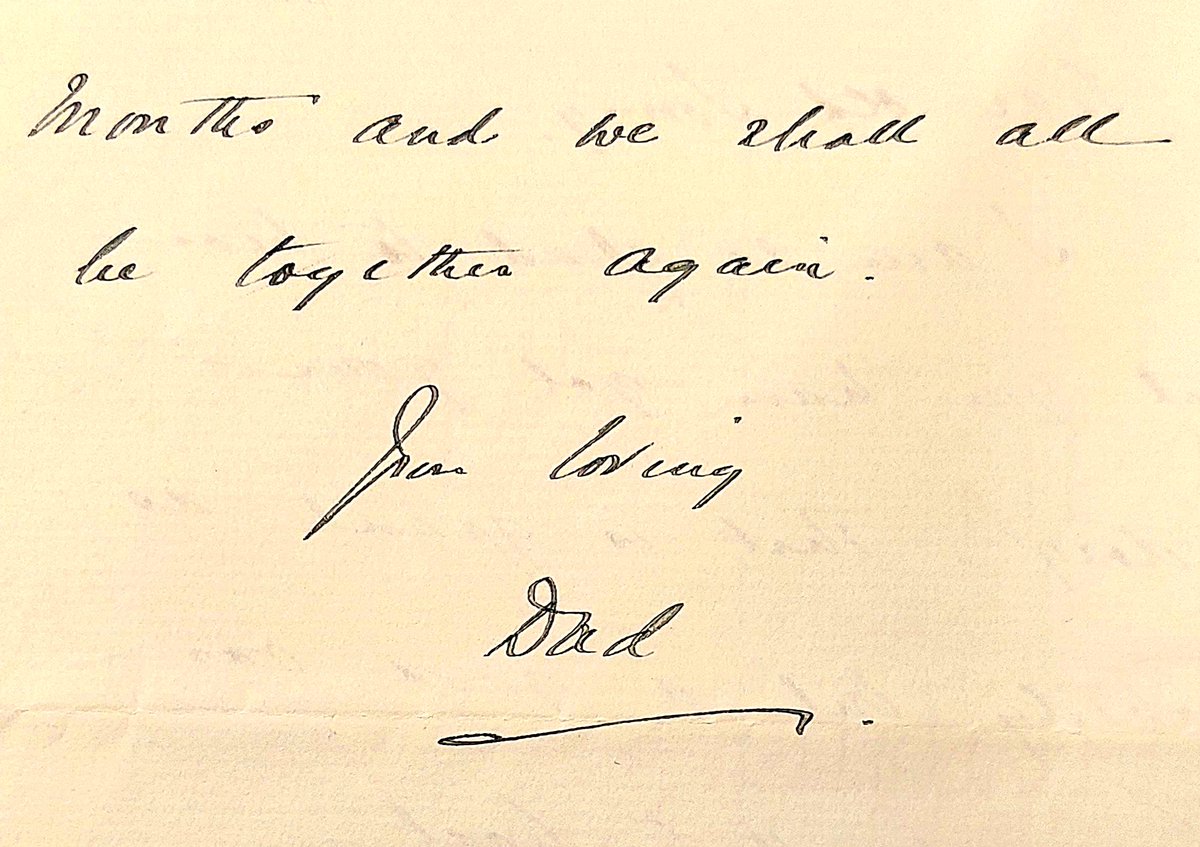 Months and we shall all
be together again.
Your loving
Dad.